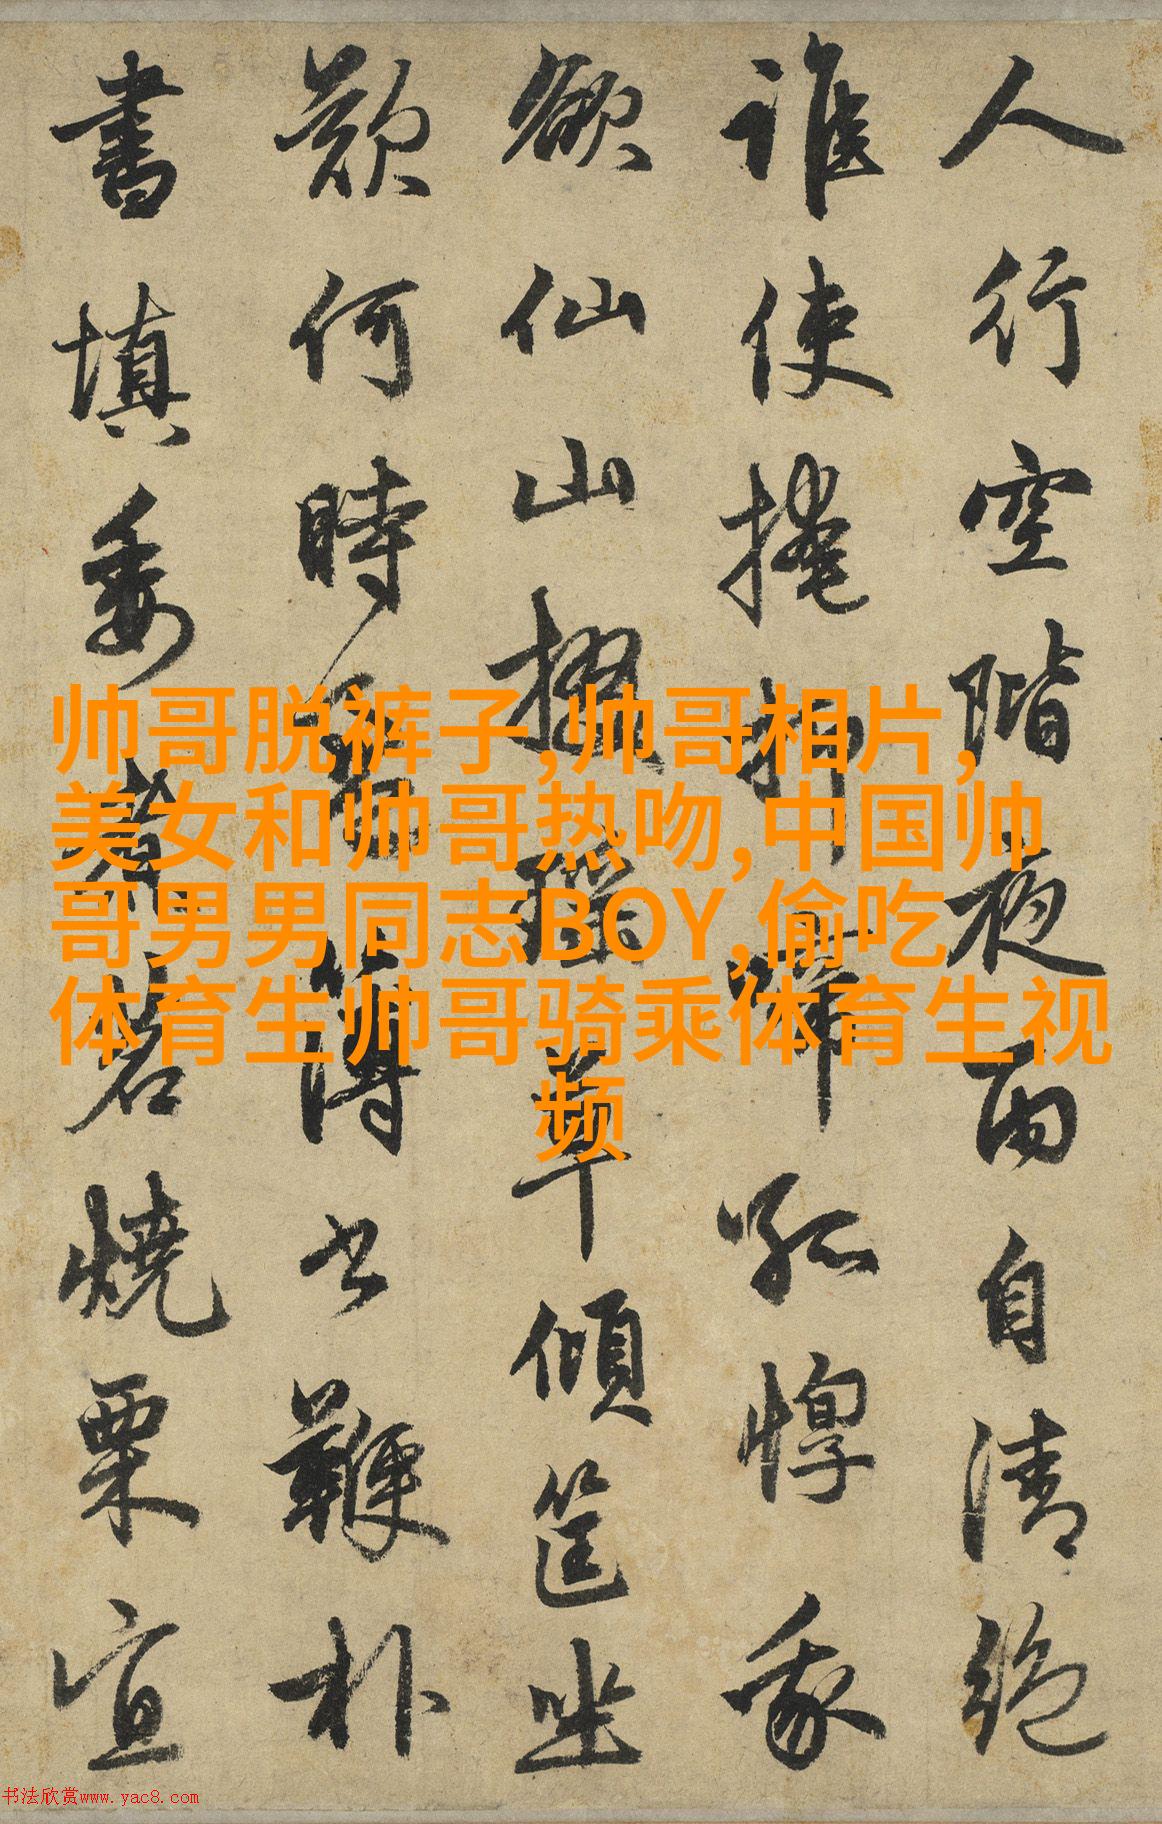 人行空階夜雨自清絕
誰使掩抑啼孤惸我
欲仙山掇瑤草傾筐坐
歎何時盈簿書鞭扑
晝填委煮茗燒栗宜
帅哥脱裤子,帅哥相片,
美女和帅哥热吻,中国帅
哥男男同志BOY,偷吃
体育生帅哥骑乘体育生视
频
书法欣赏www.yac8.com